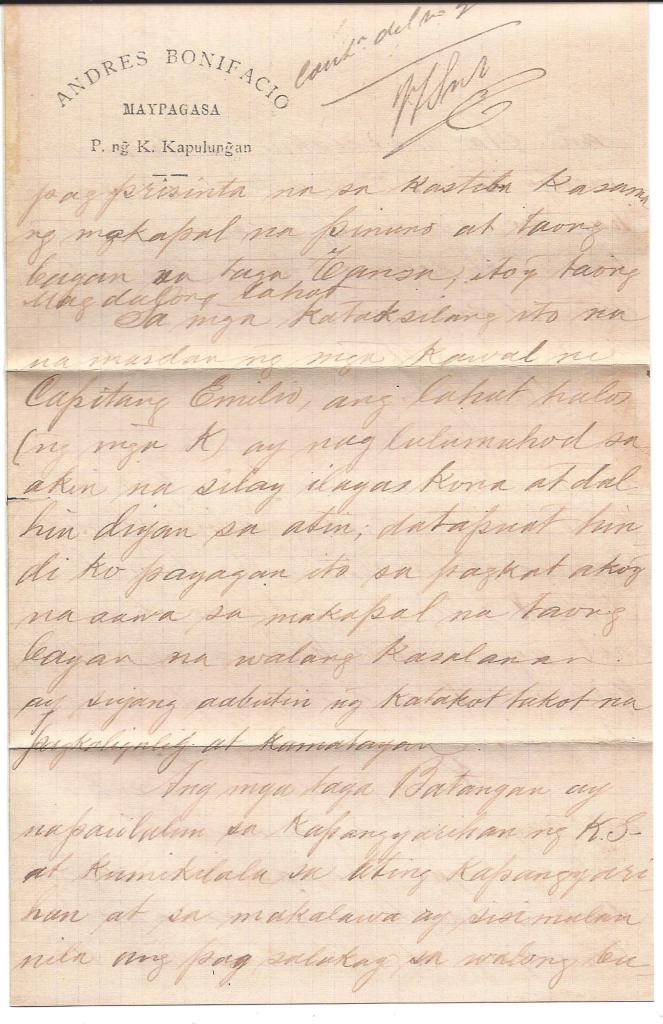 ANDRES BONIFACIO
MAYPAGASA
P. ng̃ K. Kapulung̃an
pag prisinta na sa kastila kasama
ng makapal na pinuno at taong
bayan sa taga Tansa, itoy taong
Magdalong lahat
Sa mga kataksilang ito na
na masdan ng mga kawal ni
Capitang Emilio, ang lahat halos
(ng mga K) ay nag lulumuhod sa
akin na silay iligas kona at dal
hin diyan sa atin; datapuat hin
di ko payagan ito sa pagkat akoy
na aawa sa makapal na taong
bayan na walang kasalanan
ay siyang aabutin ng katakot takot na
at kamatayan
Ang mga taga Batangan ay
napaiilalim sa Kapangyarihan ng K. S-
at kumikilala sa ating Kapangyari
han at sa makalawa ay sisimulan
nila ang pag salakay sa walong ba-